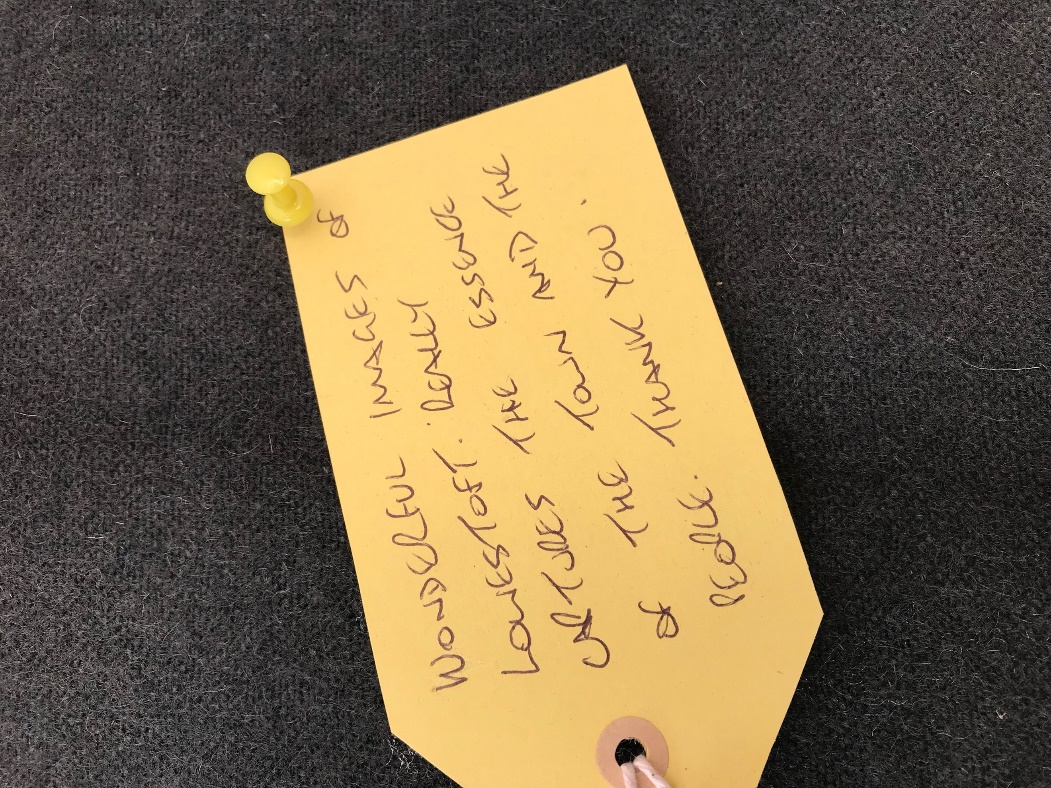 WONDERFUL IMAGES OF
LOWESTOFT. REALLY
CAPTURES THE ESSENCE
OF THE TOWN AND THE
PEOPLE. THANK YOU.